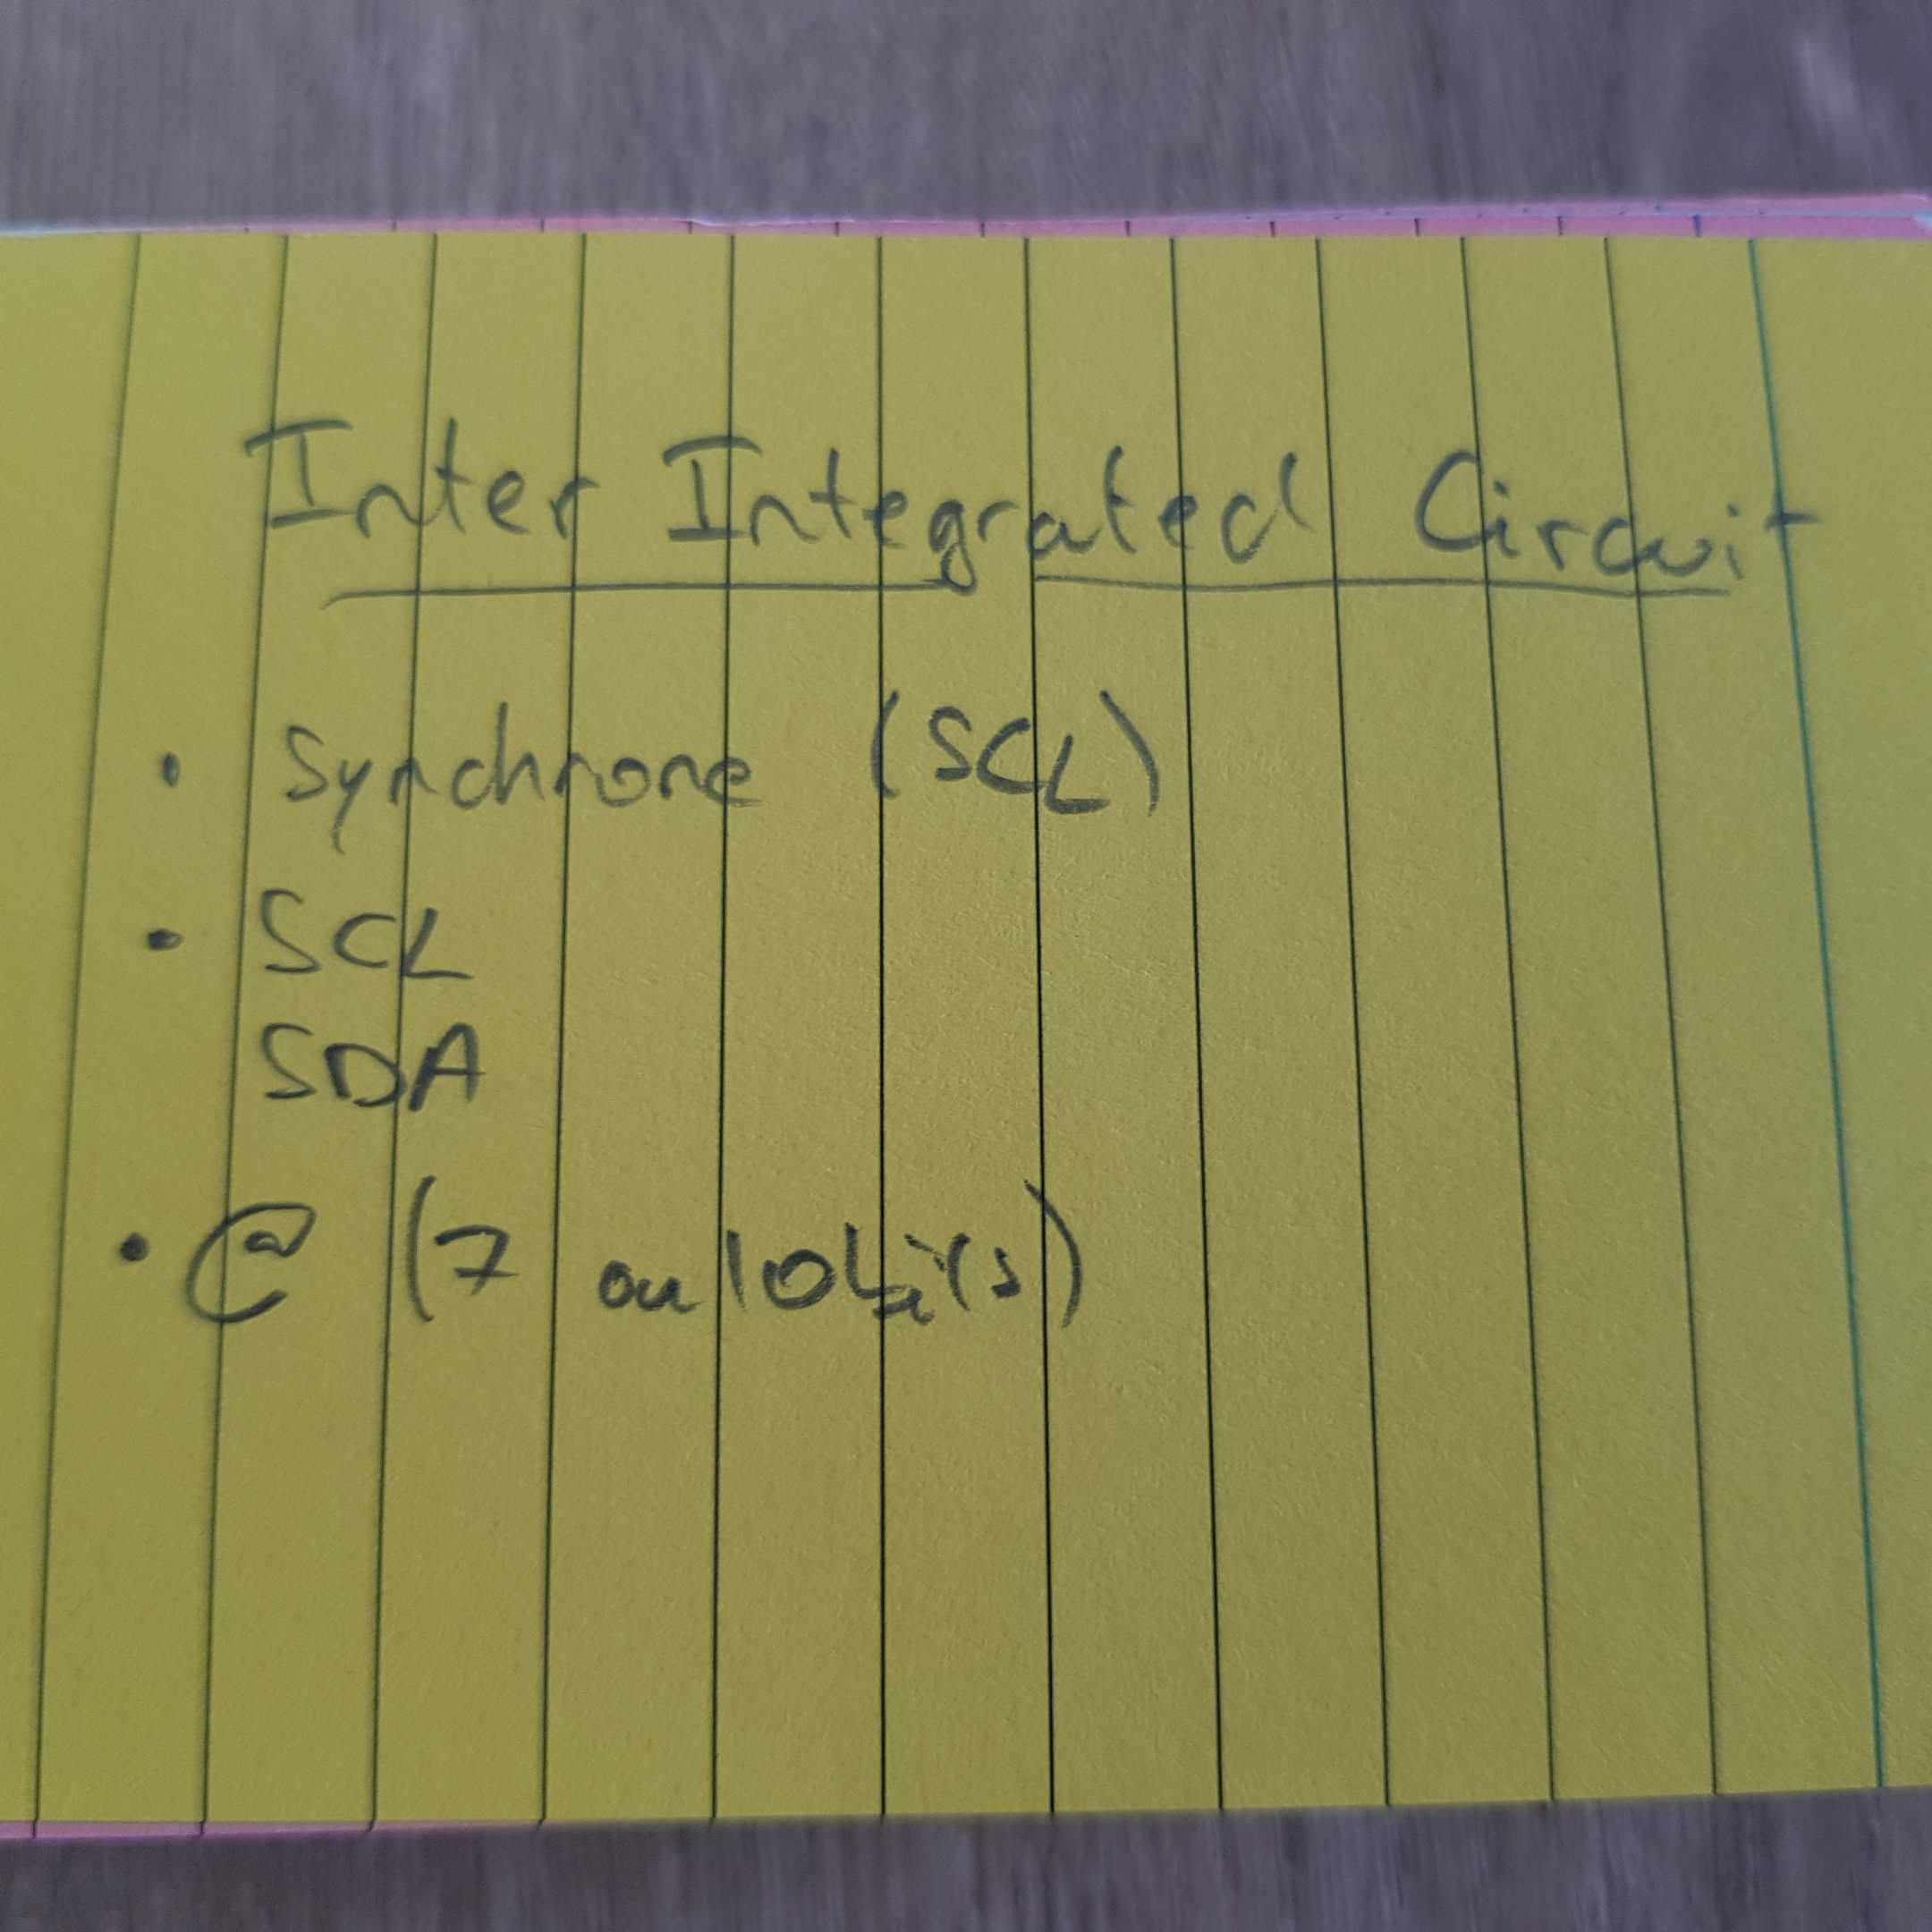 Inter Integrated Circuit
• Synchrone (SCL)
• SCL
SDA
• @ (7 ou 10 bits)